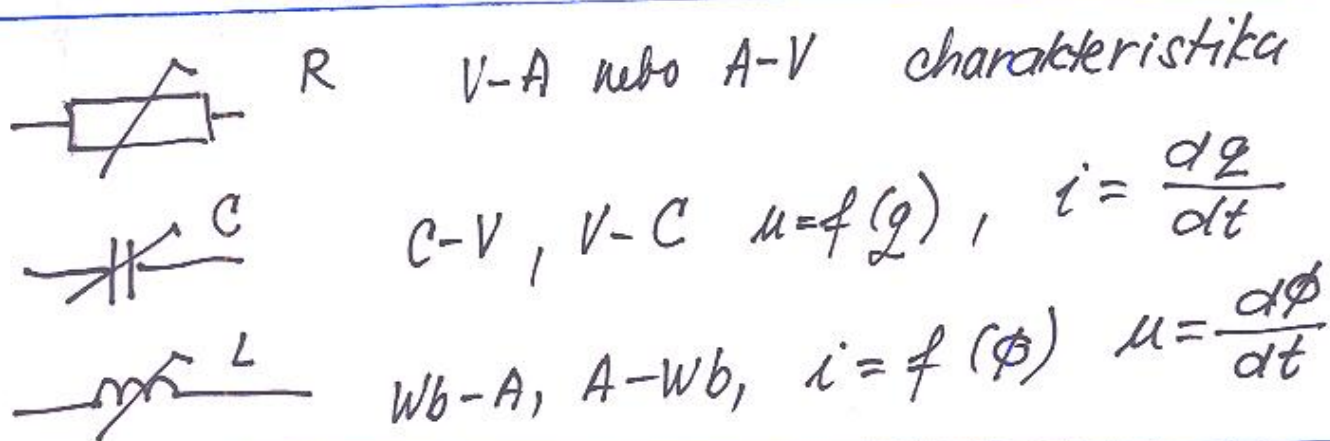 R V-A nebo A-V charakteristika
C C-V, V-C u=f(q), i = dq/dt
L Wb-A, A-Wb, i = f(ϕ) u = dϕ/dt